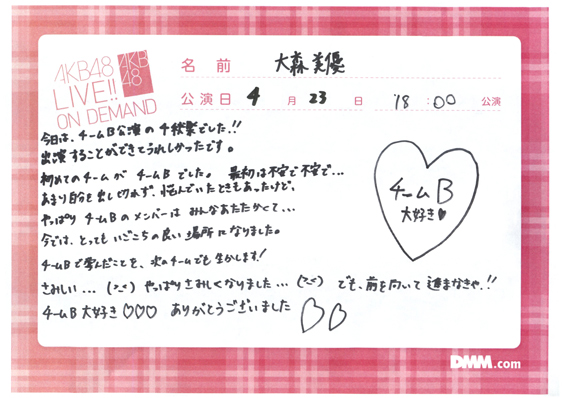 AKB48
LIVE!!
ON DEMAND
AKB
48
名前 大森美優
公演日 4月23日 '18:00 公演
今日は、チームB公演の千秋楽でした!!
出演することができてうれしかったです。
初めてのチームが チームBでした。 最初は不安で不安で...
あまり自分を出し切れず、悩んでいたときもあったけど、
やっぱり チームBのメンバーは みんなあたたかくて...
今では、とっても いごこちの良い 場所に なりました。
チームBで学んだことを、次のチームでも生かします!
さみしい... (>_<) やっぱりさみしくなりました... (>_<) でも、前を向いて 進まなきゃ.!!
チームB大好き♡♡♡ ありがとうございました ♡♡
チームB
大好き♥
DMM.com